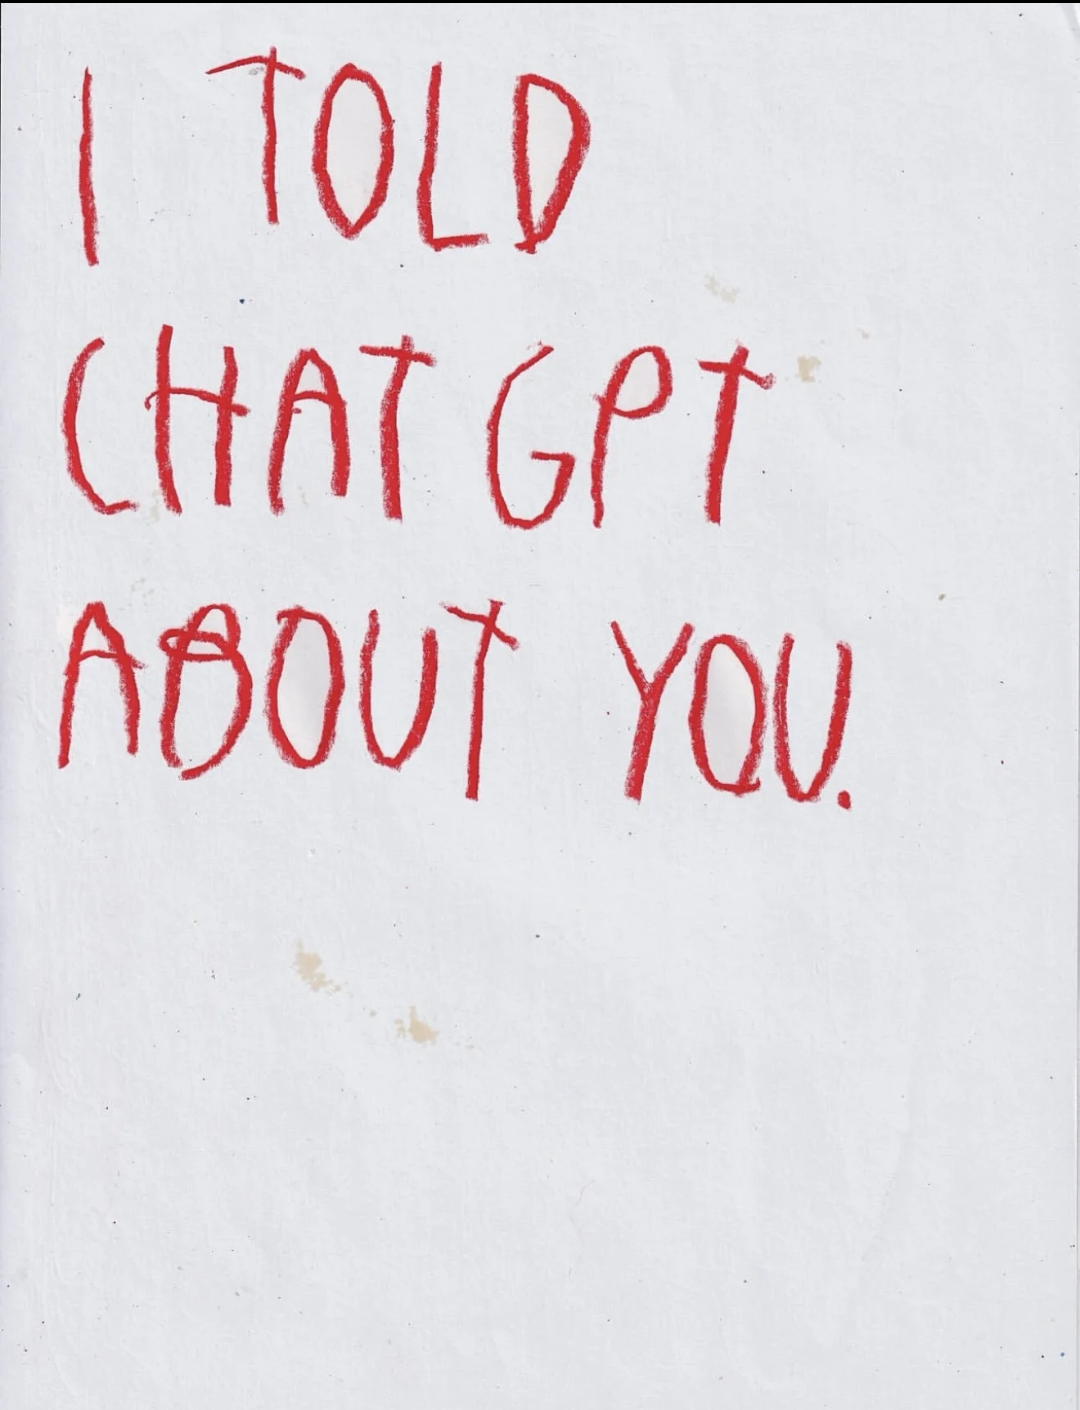 I TOLD
CHAT GPT
ABOUT YOU.